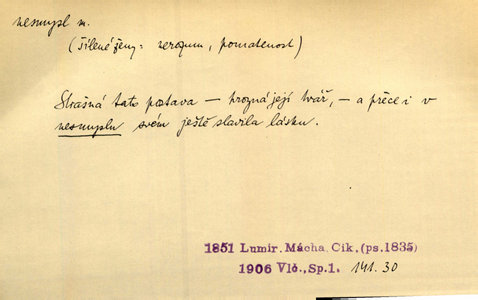 nesmysl m.
(šílené ženy: nerozum, pomatenost)
Strašná tato postava – hrozná její tvář, – a přece i v
nesmyslu svém ještě slavila lásku.
1851 Lumír, Mácha, Cik, (ps. 1835)
1906 Vlč., Sp. 1. 141. 30